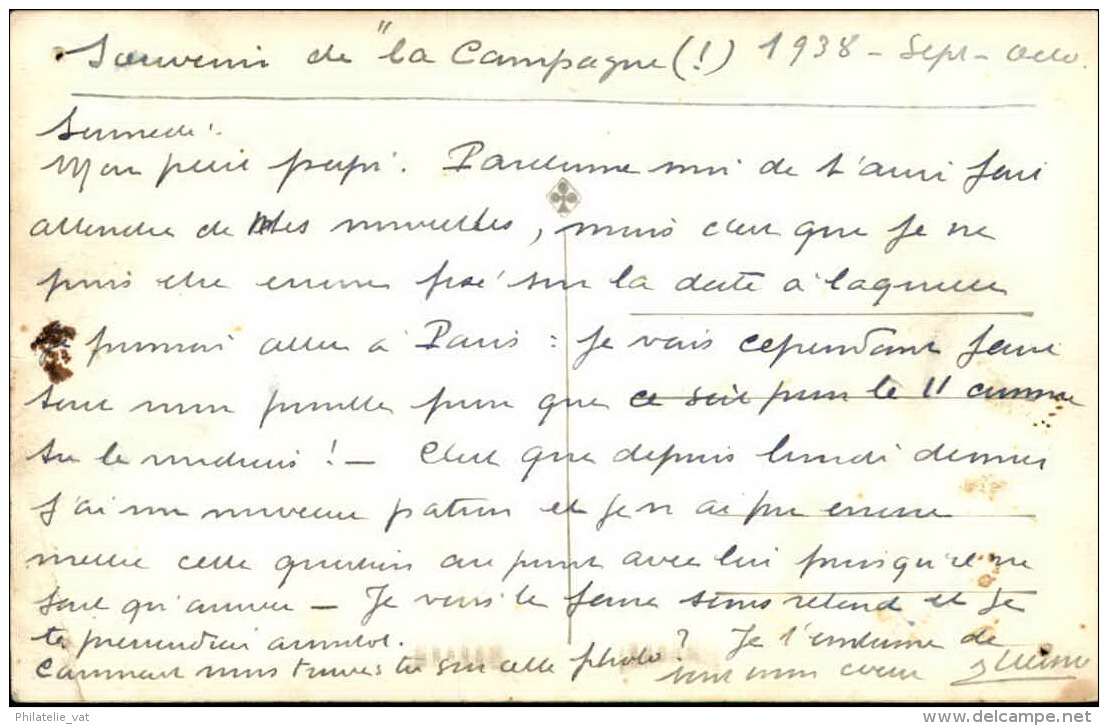 Souvenir de "la Campagne (!) 1938 - Sept - Octo.
Samedi.
Mon petit papi. Pardonne moi de t'avoir fait
attendre de mes nouvelles, mais c'est que je ne
puis etre encore fixé sur la date à laquelle
je pourrai aller à Paris : je vais cependant faire
tout mon possible pour que ce soit pour le 11 comme
tu le voudrais ! — C'est que depuis lundi dernier
j'ai un nouveau patron et je n'ai pu encore
mettre cette question au point avec lui puisqu'il ne
fait qu'arriver — Je vais le faire sans retard et je
te préviendrai aussitot.
Comment nous trouves tu sur cette photo ? Je t'embrasse de
tout mon coeur
Philatelie_vat
www.delcampe.net